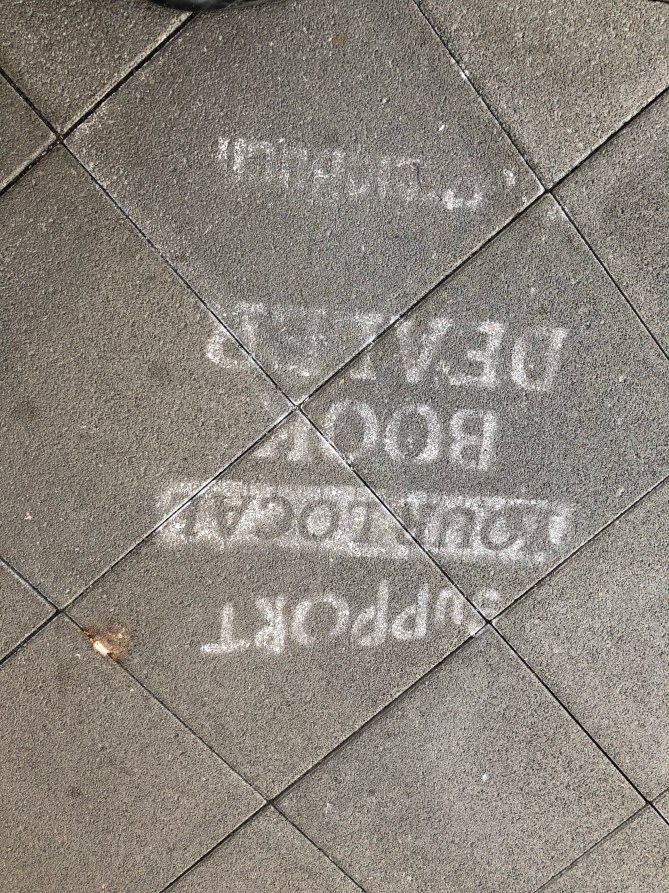 SUPPORT
YOUR LOCAL
BOOK
DEALER